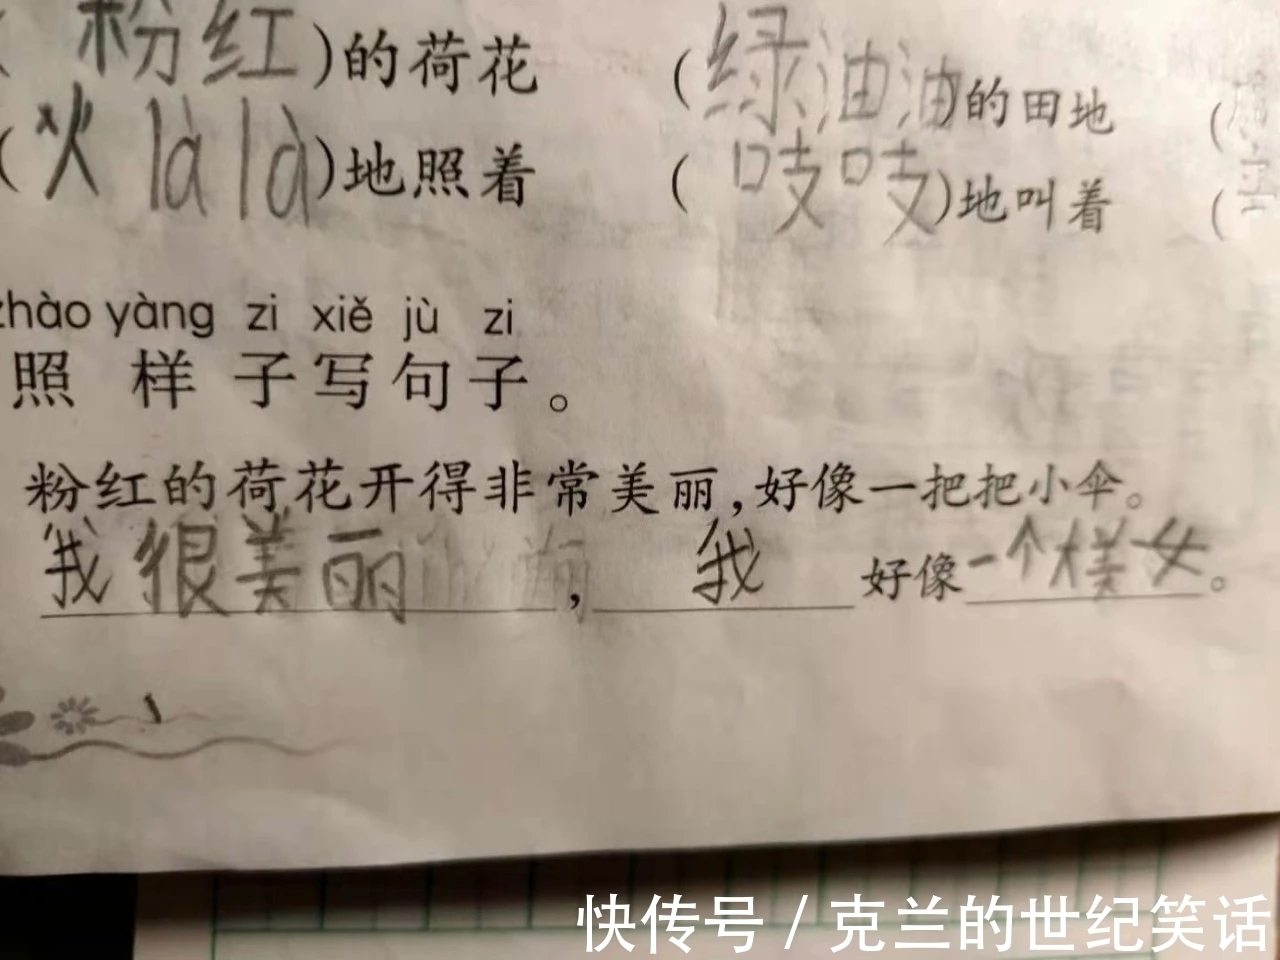 (粉红)的荷花 (绿油油)的田地 (
(火là là)地照着 (吱吱)地叫着 (
zhào yàng zi xiě jù zi
照样子写句子。
粉红的荷花开得非常美丽,好像一把把小伞。
我很美丽,我好像一个大美女。
快传号/克兰的世纪笑话